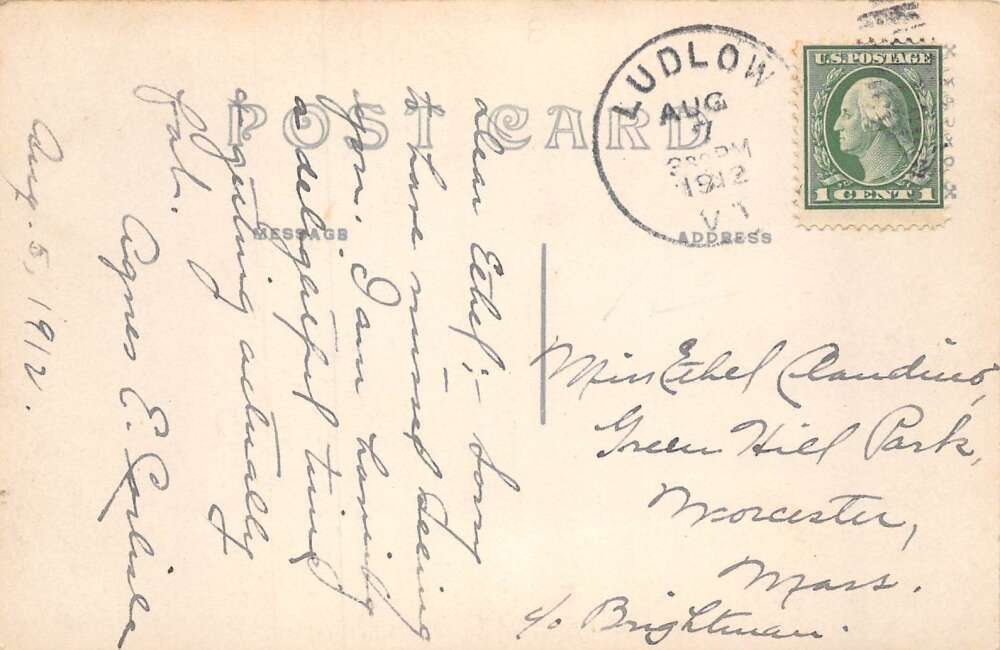 POST CARD
MESSAGE
ADDRESS
LUDLOW
AUG
PM
1912
VT
U.S. POSTAGE
1 CENT 1
Dear Ethel:- Sorry
to have missed seeing
you. I am having
a delightful time
& getting actually
fat.
Agnes E.
Aug. 5, 1912.
Miss Ethel
Green Hill Park,
Worcester,
Mass.
c/o Brightman.